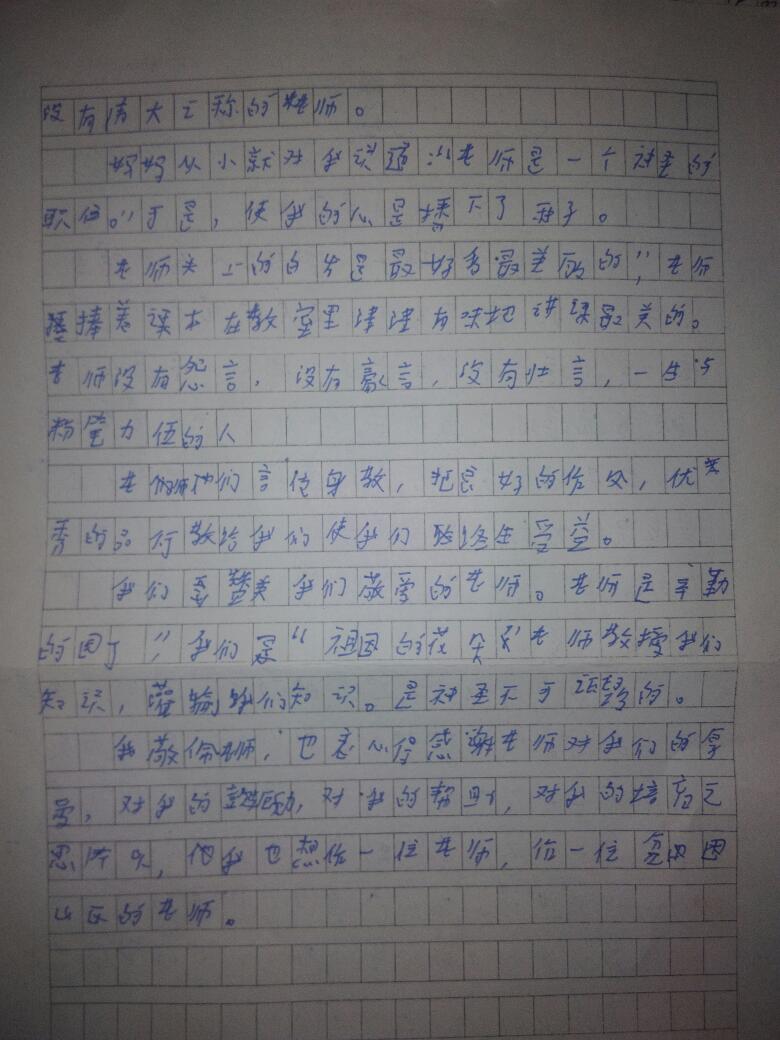 没有伟大之称的老师。
妈妈从小就对我说道:"老师是一个神圣的
职位。"于是,使我的心是 不了 子。
老师头上的白发是最好看最美丽的",老师
捧着课本在教室里津津有味地讲课最美的。
老师没有怨言,没有豪言,没有壮言,一生与
粉笔 伍的人
老师他们言传身教,把 好的作风,优
秀的品行教给我们使我们 生受益。
我们 赞美我们敬爱的老师。老师是辛勤
的园丁"我们是"祖国的花朵"老师教授我们
知识,灌输我们知识。是神圣不可 的。
我敬佩老师,也衷心得感谢老师对我们的厚
爱,对我的鼓励,对我的帮助,对我的培育之
恩 ,但我也想作一位老师,作一位贫困
山区的老师。